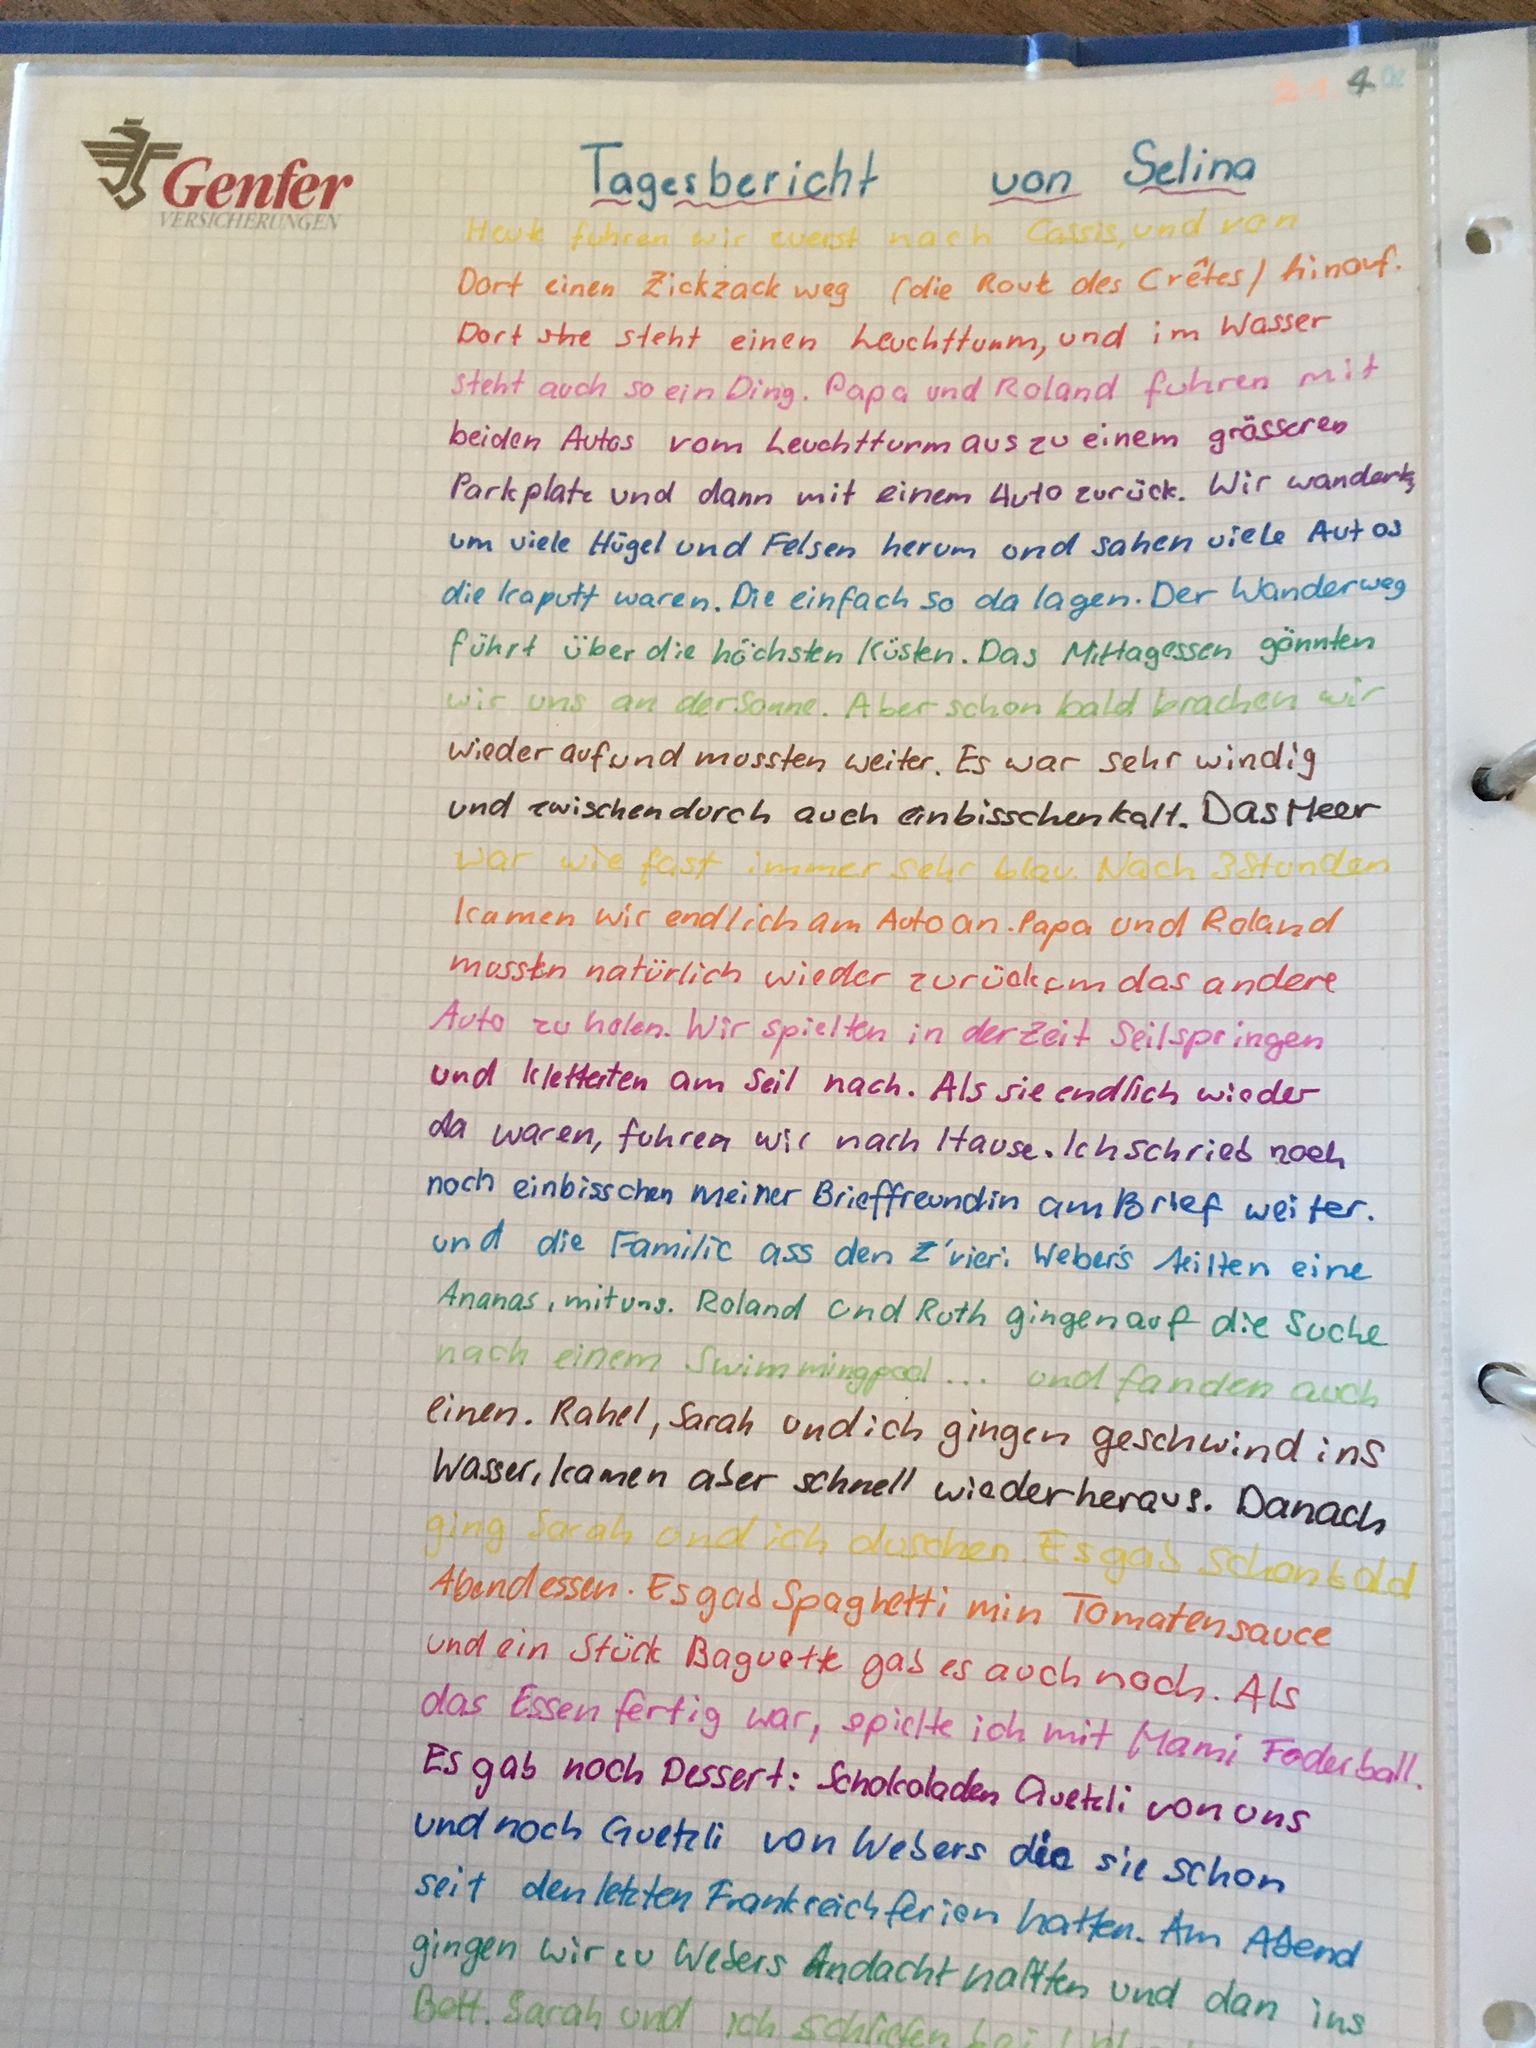 21.4.02
Genfer
VERSICHERUNGEN
Tagesbericht von Selina
Heute fuhren wir zuerst nach Cassis, und von
Dort einen Zickzack weg (die Route des Crêtes) hinauf.
Dort ste steht einen Leuchtturm, und im Wasser
steht auch so ein Ding. Papa und Roland fuhren mit
beiden Autos vom Leuchtturm aus zu einem grösseren
Parkplatz und dann mit einem Auto zurück. Wir wanderten
um viele Hügel und Felsen herum und sahen viele Autos
die kaputt waren. Die einfach so da lagen. Der Wanderweg
führt über die höchsten Küsten. Das Mittagessen gönnten
wir uns an der Sonne. Aber schon bald brachen wir
wieder auf und mussten weiter. Es war sehr windig
und zwischendurch auch einbisschen kalt. Das Meer
war wie fast immer sehr blau. Nach 3 Stunden
kamen wir endlich am Auto an. Papa und Roland
mussten natürlich wieder zurück um das andere
Auto zu holen. Wir spielten in der Zeit Seilspringen
und kletterten am Seil nach. Als sie endlich wieder
da waren, fuhren wir nach Hause. Ich schrieb noch
noch einbisschen meiner Brieffreundin am Brief weiter.
und die Familie ass den Z'vieri Weber's teilten eine
Ananas, mit uns. Roland und Ruth gingen auf die Suche
nach einem Swimmingpool... und fanden auch
einen. Rahel, Sarah und ich gingen geschwind ins
Wasser, kamen aber schnell wieder heraus. Danach
ging Sarah und ich duschen. Es gab schon bald
Abendessen. Es gab Spaghetti min Tomatensauce
und ein Stück Baguette gab es auch noch. Als
das Essen fertig war, spielte ich mit Mami Federball.
Es gab noch Dessert: Schokoladen Guetzli von uns
und noch Guetzli von Webers die sie schon
seit den letzten Frankreichferien hatten. Am Abend
gingen wir zu Webers Andacht halten und dan ins
Bett. Sarah und ich schliefen bei